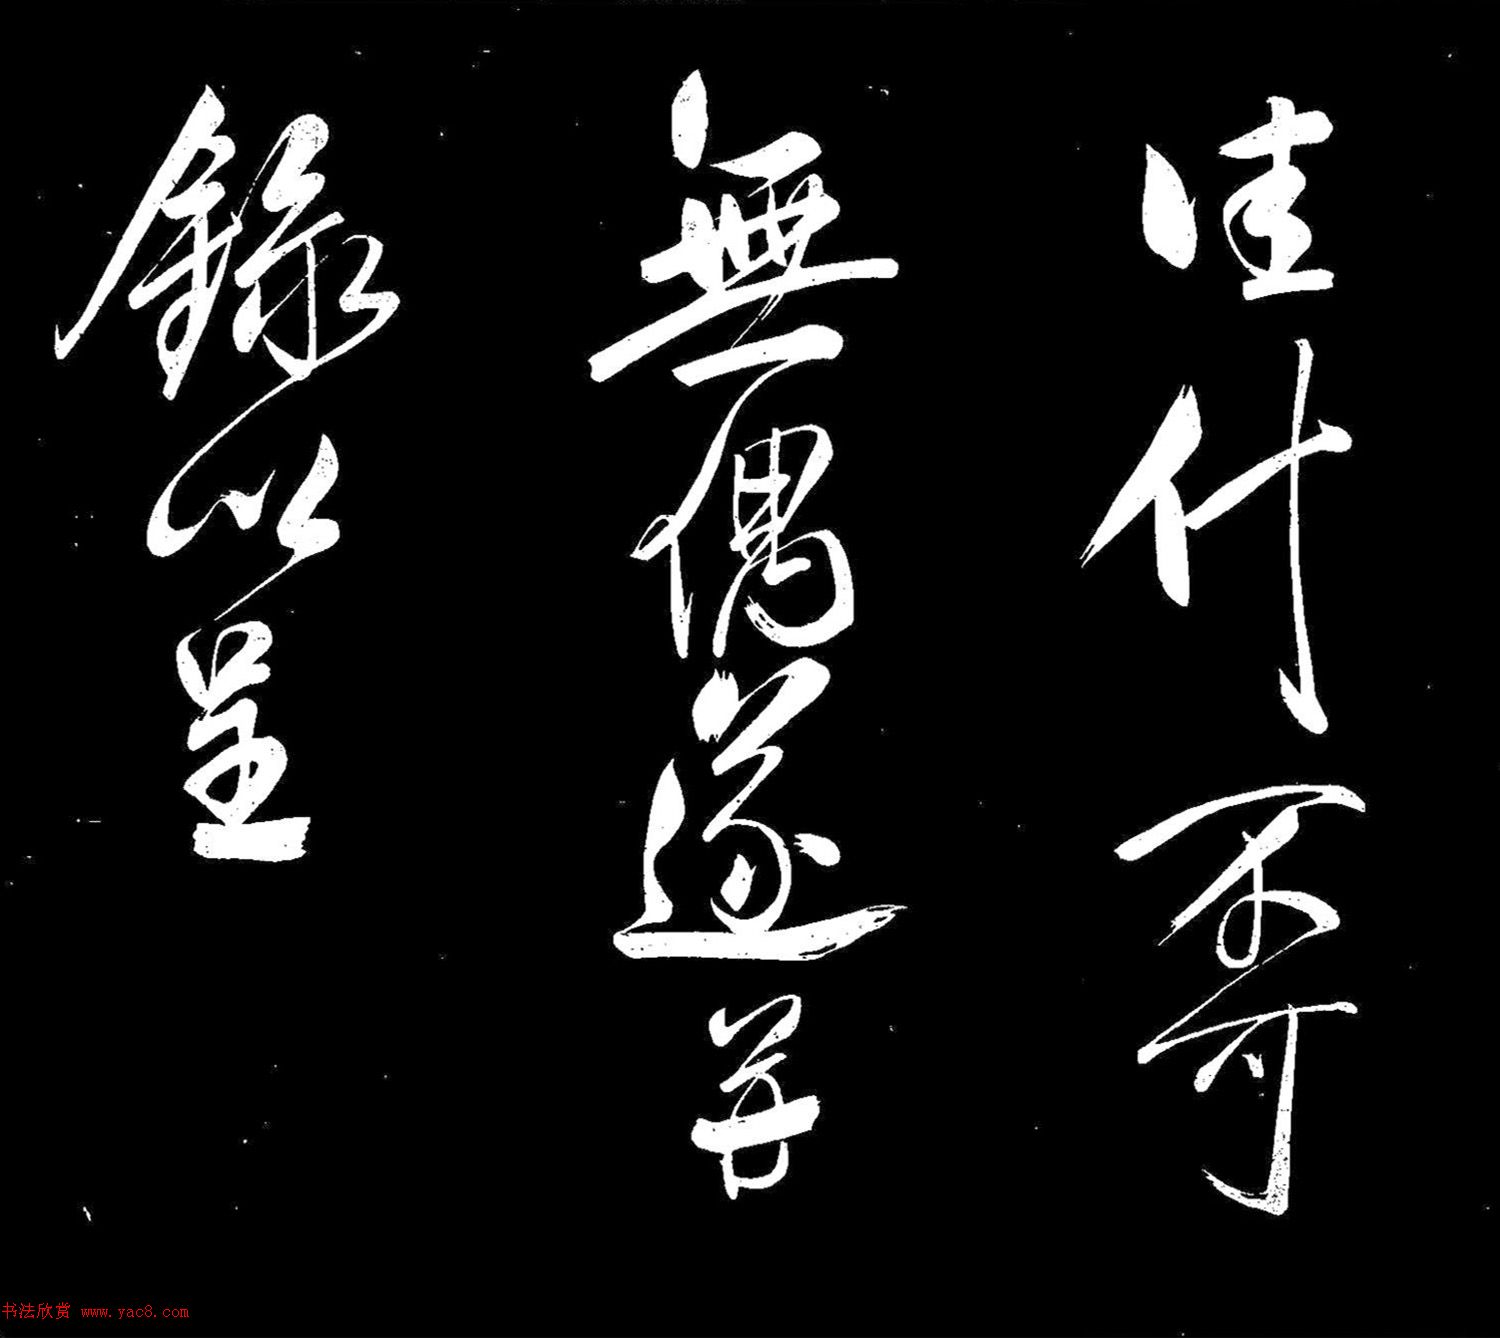 佳什不可
無偶遂并
錄以呈
书法欣赏 www.yac8.com